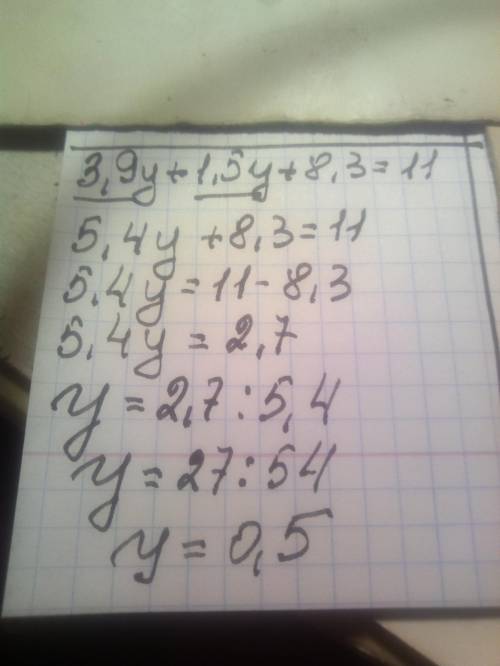 3,9y+1,5y+8,3=11
5,4y+8,3=11
5,4y=11-8,3
5,4y=2,7
y=2,7:5,4
y=27:54
y=0,5